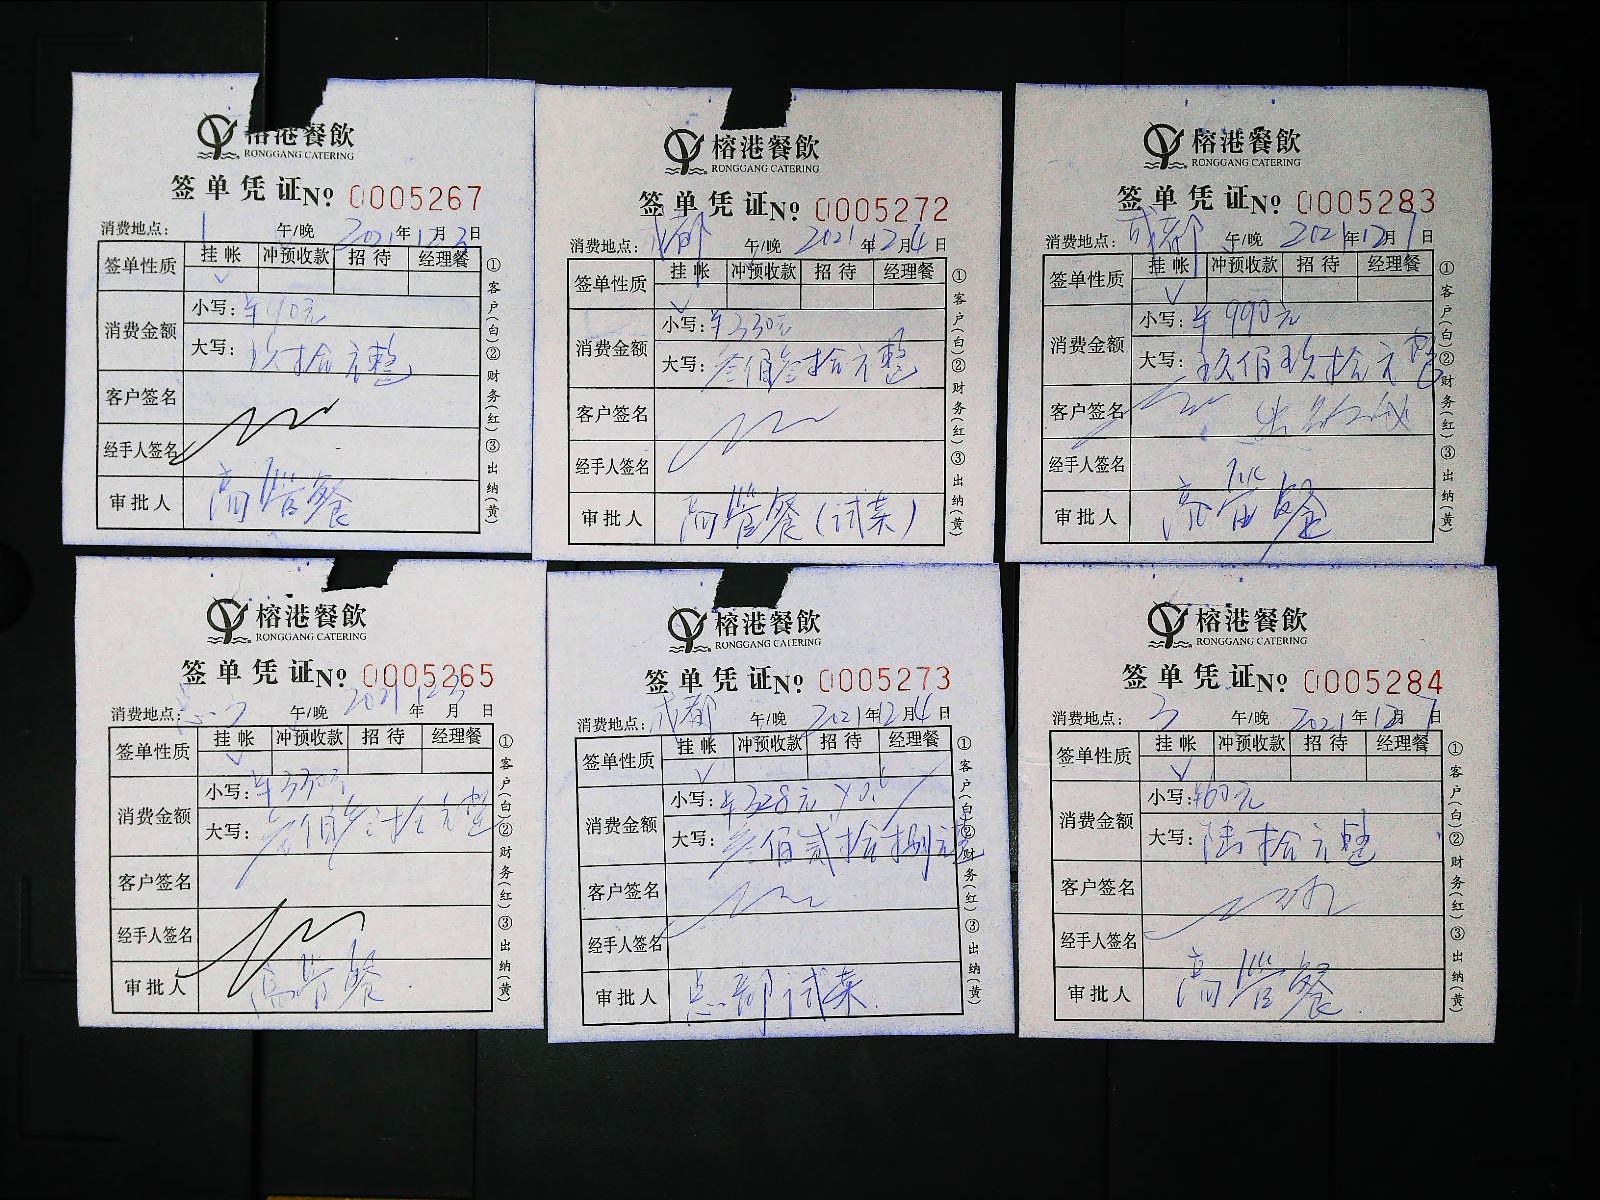 榕港餐飲
RONGGANG CATERING
签单凭证 No 0005267
消费地点: 1 午/晚 2021年12月3日
签单性质 挂帐 冲预收款 招待 经理餐
✓
消费金额 小写: ¥90元
大写: 玖拾元整
客户签名
经手人签名
审批人 高管餐
①客户(白)②财务(红)③出纳(黄)
榕港餐飲
RONGGANG CATERING
签单凭证 No 0005272
消费地点: 成都 午/晚 2021年12月4日
签单性质 挂帐 冲预收款 招待 经理餐
✓
消费金额 小写: ¥330元
大写: 叁佰叁拾元整
客户签名
经手人签名
审批人 高管餐(试菜)
①客户(白)②财务(红)③出纳(黄)
榕港餐飲
RONGGANG CATERING
签单凭证 No 0005283
消费地点: 成都 午/晚 2021年12月7日
签单性质 挂帐 冲预收款 招待 经理餐
✓
消费金额 小写: ¥990元
大写: 玖佰玖拾元整
客户签名
经手人签名
审批人 高管餐
①客户(白)②财务(红)③出纳(黄)
榕港餐飲
RONGGANG CATERING
签单凭证 No 0005265
消费地点: 午/晚 2021年12月3日
签单性质 挂帐 冲预收款 招待 经理餐
✓
消费金额 小写: ¥330元
大写: 叁佰叁拾元整
客户签名
经手人签名
审批人 高管餐
①客户(白)②财务(红)③出纳(黄)
榕港餐飲
RONGGANG CATERING
签单凭证 No 0005273
消费地点: 成都 午/晚 2021年12月4日
签单性质 挂帐 冲预收款 招待 经理餐
✓
消费金额 小写: ¥328元
大写: 叁佰贰拾捌元整
客户签名
经手人签名
审批人 总部试菜
①客户(白)②财务(红)③出纳(黄)
榕港餐飲
RONGGANG CATERING
签单凭证 No 0005284
消费地点: 3 午/晚 2021年12月7日
签单性质 挂帐 冲预收款 招待 经理餐
✓
消费金额 小写: ¥60元
大写: 陆拾元整
客户签名
经手人签名
审批人 高管餐
①客户(白)②财务(红)③出纳(黄)